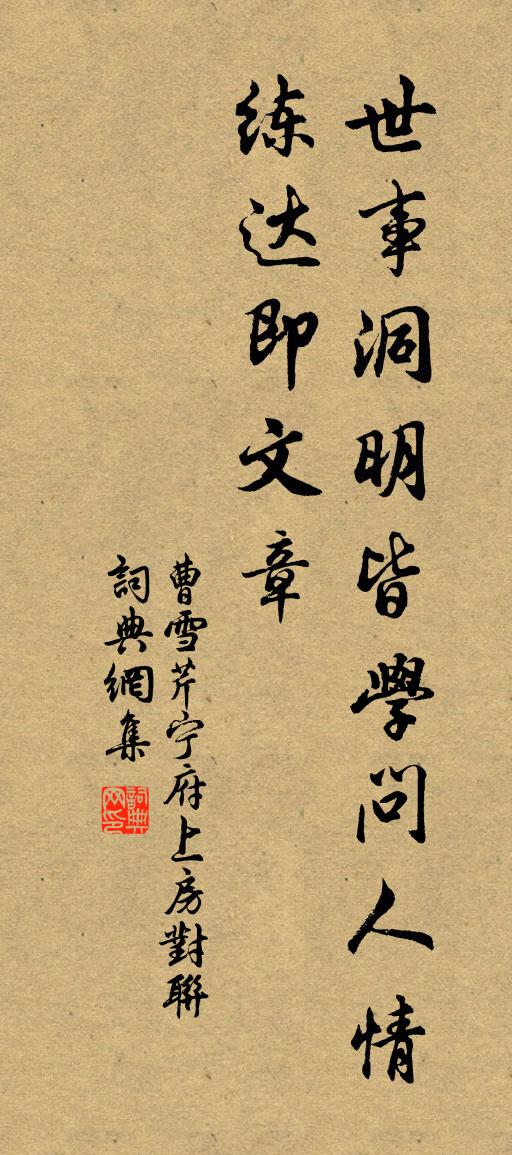 世事洞明皆學问人情
练达即文章
曹雪芹宁府上房對聯
詞典網集
詞典网印